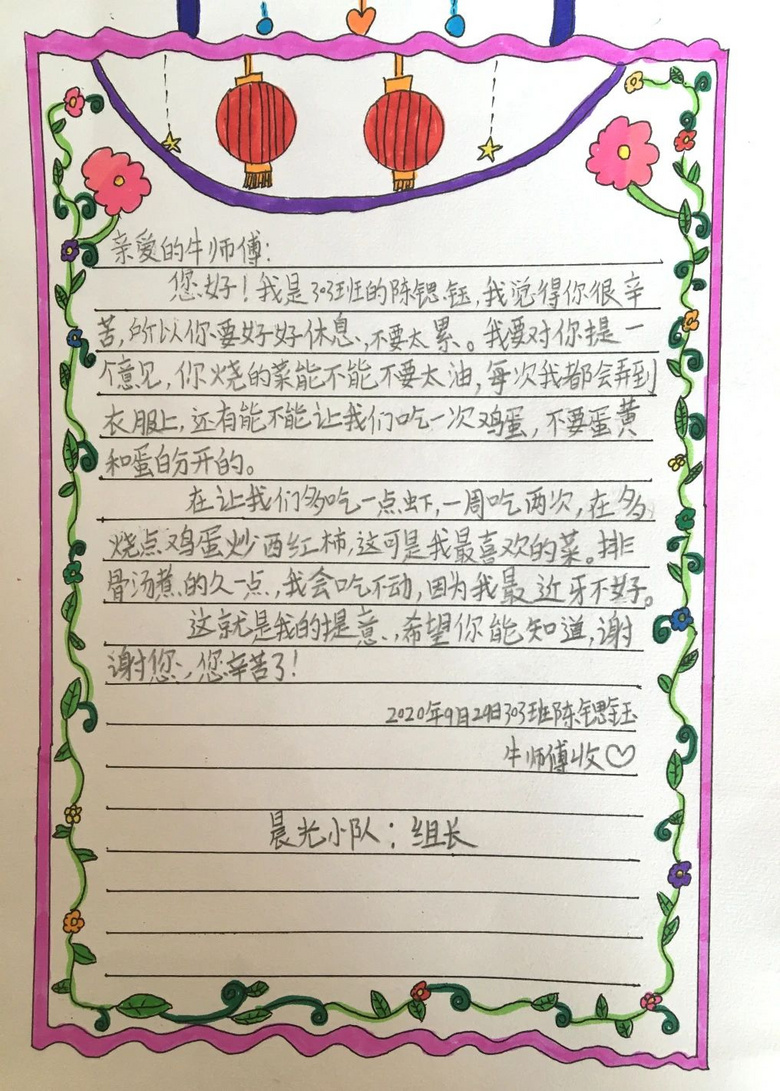 亲爱的牛师傅:
您好!我是303班的陈锶钰,我觉得你很辛
苦,所以你要好好休息,不要太累。我要对你提一
个意见,你烧的菜能不能不要太油,每次我都会弄到
衣服上,还有能不能让我们吃一次鸡蛋,不要蛋黄
和蛋白分开的。
在让我们多吃一点虾,一周吃两次,在多
烧点鸡蛋炒西红柿,这可是我最喜欢的菜。排
骨汤煮的久一点,我会吃不动,因为我最近牙不好。
这就是我的提意,希望你能知道,谢
谢您,您辛苦了!
2020年9月29日303班陈锶钰
牛师傅收♡
晨光小队:组长